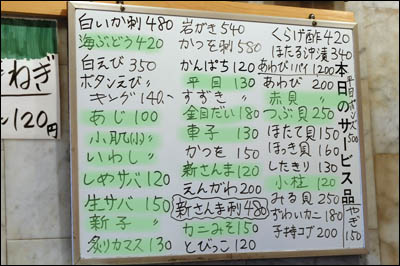 白いか刺480
海ぶどう420
白えび350
ボタンえび〃
キング140.-
あじ100
小肌(小)〃
いわし〃
しめサバ120
生サバ150
新子〃
炙りカマス130
岩がき540
かつを刺580
かんぱち120
平目130
すずき〃
金目だい180
車子130
かつを150
新さんま120
えんがわ200
新さんま刺480
カニみそ150
とびっこ120
くらげ酢420
ほたる沖漬340
あわびバイ1200
あわび200
赤貝〃
つぶ貝250
ほたて貝150
ほっき貝160
したきり130
小柱120
みる貝250
ずわいカニ180
子持コブ200
本日のサービス品
やぎ150
ねぎ
120円